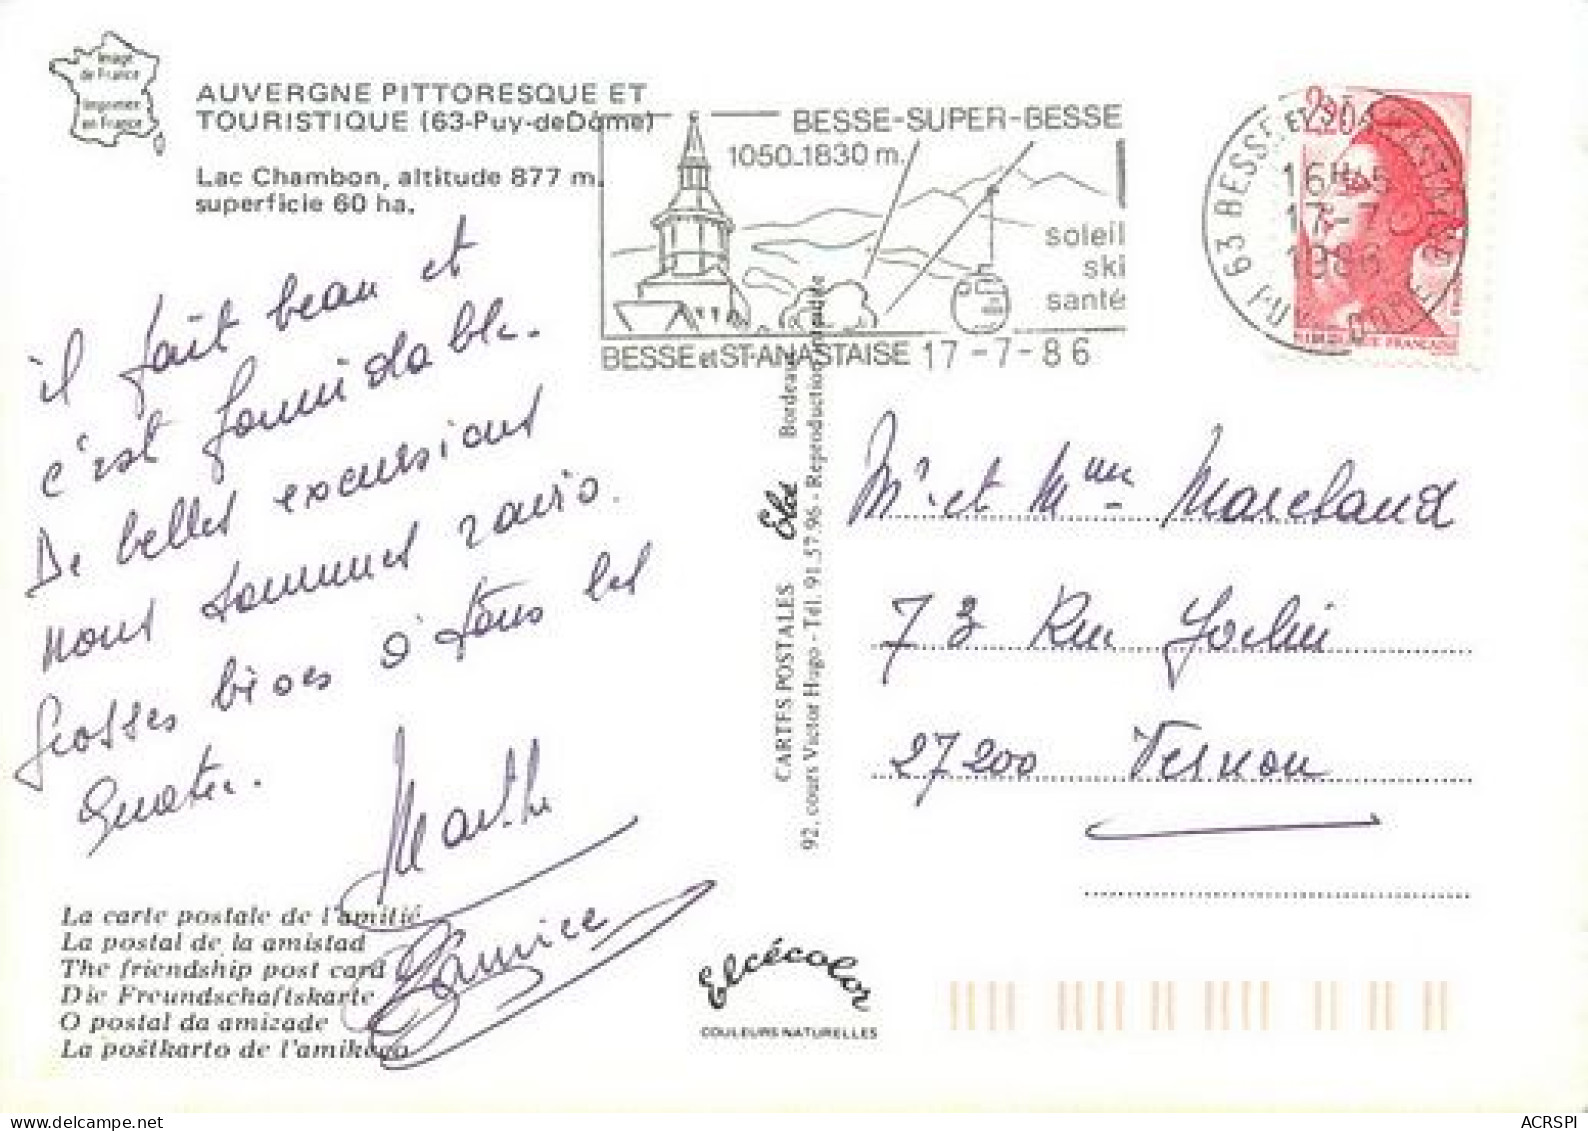 Image
de France
Imprimée
en France
AUVERGNE PITTORESQUE ET
TOURISTIQUE (63-Puy-deDôme)
Lac Chambon, altitude 877 m.
superficie 60 ha.
BESSE-SUPER-BESSE
1050-1830 m.
soleil
ski
santé
BESSE et ST-ANASTAISE 17-7-86
63 BESSE ET ST ANASTAISE
16H45
17-7
1986
2,20
il fait beau et
c'est formidable.
De belles excursions
nous sommes ravis.
Grosses bises à tous les
quatre.
Marthe
Elcé Bordeaux
CARTES POSTALES
92, cours Victor Hugo - Tél. 91.57.96 - Reproduction interdite
Mr et Mme Marchand
73 Rue
27200 Vernon
La carte postale de l'amitié
La postal de la amistad
The friendship post card
Die Freundschaftskarte
O postal da amizade
La poŝtkarto de l'amikeco
Elcécolor
COULEURS NATURELLES
ACRSPI